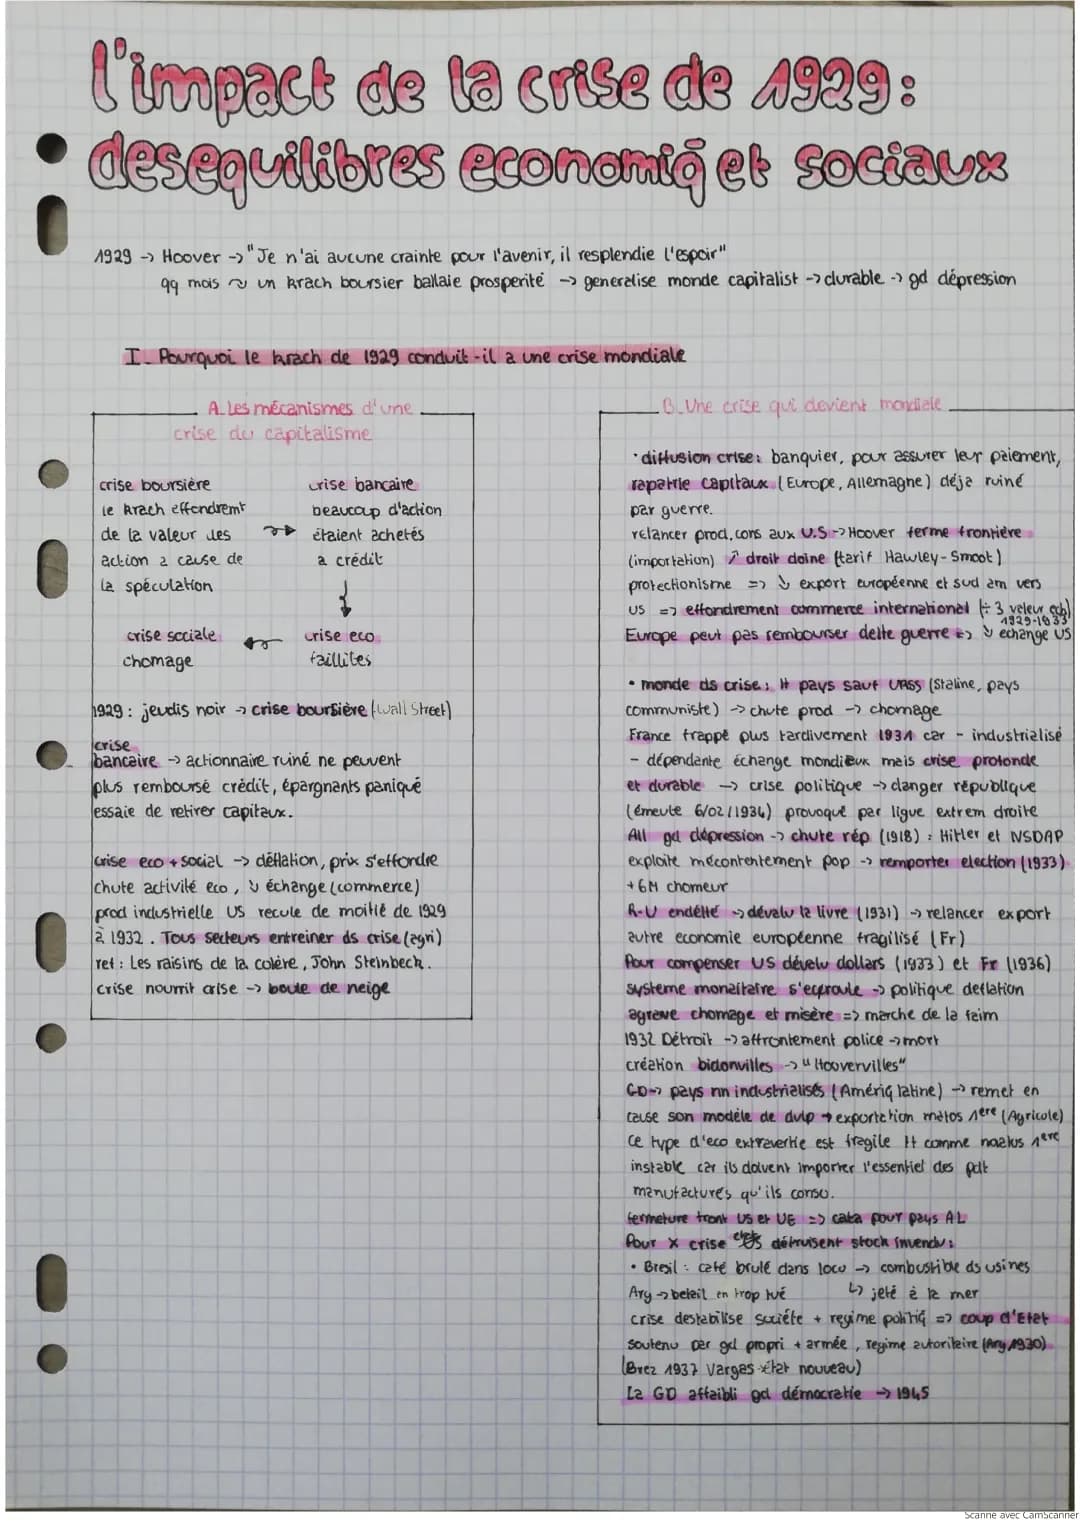 l'impact de la crise de 1929 :
desequilibres economiq̄ et sociaux
1929 -> Hoover -> "Je n'ai aucune crainte pour l'avenir, il resplendie l'espoir"
qq mois ~> un krach boursier ballaie prosperité -> generalise monde capitalist -> durable -> gd dépression
I_ Pourquoi le krach de 1929 conduit-il a une crise mondiale
A_ Les mécanismes d'une
crise du capitalisme
crise boursière
le krach effondremt
de la valeur des
action a cause de
la spéculation
crise bancaire
beaucoup d'action
étaient achetés
a crédit
crise sociale
chomage
crise eco
faillites
1929 : jeudis noir -> crise boursière (Wall Street)
crise
bancaire -> actionnaire ruiné ne peuvent
plus remboursé crédit, épargnants paniqué
essaie de retirer capitaux.
crise eco + social -> déflation, prix s'effondre
chute activité eco, ↘ échange (commerce)
prod industrielle US recule de moitié de 1929
à 1932. Tous secteurs entreiner ds crise (agri)
ref : Les raisins de la colère, John Steinbeck.
crise nourrit crise -> boule de neige
B_ Une crise qui devient mondiale
• diffusion crise : banquier, pour assurer leur paiement,
rapatrie capitaux (Europe, Allemagne) déja ruiné
par guerre.
relancer prod, cons aux U.S -> Hoover ferme frontière
(importation) ↗ droit doine (tarif Hawley-Smoot)
protectionisme => ↘ export européenne et sud am vers
US => effondrement commerce international (÷ 3 valeur ech)
1929-1933
Europe peut pas rembourser dette guerre => ↘ echange US
• monde ds crise : tt pays sauf URSS (Staline, pays
communiste) -> chute prod -> chomage
France frappé plus tardivement 1931 car - industrialisé
- dépendante échange mondiaux mais crise profonde
et durable -> crise politique -> danger république
(émeute 6/02/1934) provoqué par ligue extrem droite
All gd dépression -> chute rép (1918) : Hitler et NSDAP
exploite mécontentement pop -> remporter election (1933)
+6M chomeur
R-U endétté -> dévalu la livre (1931) -> relancer export
autre economie européenne fragilisé (Fr)
Pour compenser US dévalu dollars (1933) et Fr (1936)
systeme monaitaire s'ecproule -> politique deflation
agrave chomage et misère => marche de la faim
1932 Détroit -> affrontement police -> mort
création bidonvilles -> "Hoovervilles"
GD -> pays nn industrialisés (Amériq latine) -> remet en
cause son modèle de dvlp -> exportation matos 1ère (Agricole)
ce type d'eco extravertie est fragile tt comme 1ere
instable car ils doivent importer l'essentiel des pdt
manufacturés qu'ils conso.
fermeture front US et UE => cata pour pays AL
Pour X crise etats détruisent stock invendu :
• Bresil : café brulé dans loco -> combustible ds usines
Arg -> betail en trop tué ↳ jeté à la mer
crise destabilise société + regime politiq => coup d'Etat
soutenu par gd propri + armée, regime autoritaire (Arg 1930)
(Brez 1937 Vargas état nouveau)
La GD affaibli gd démocratie -> 1945
Scanné avec CamScanner